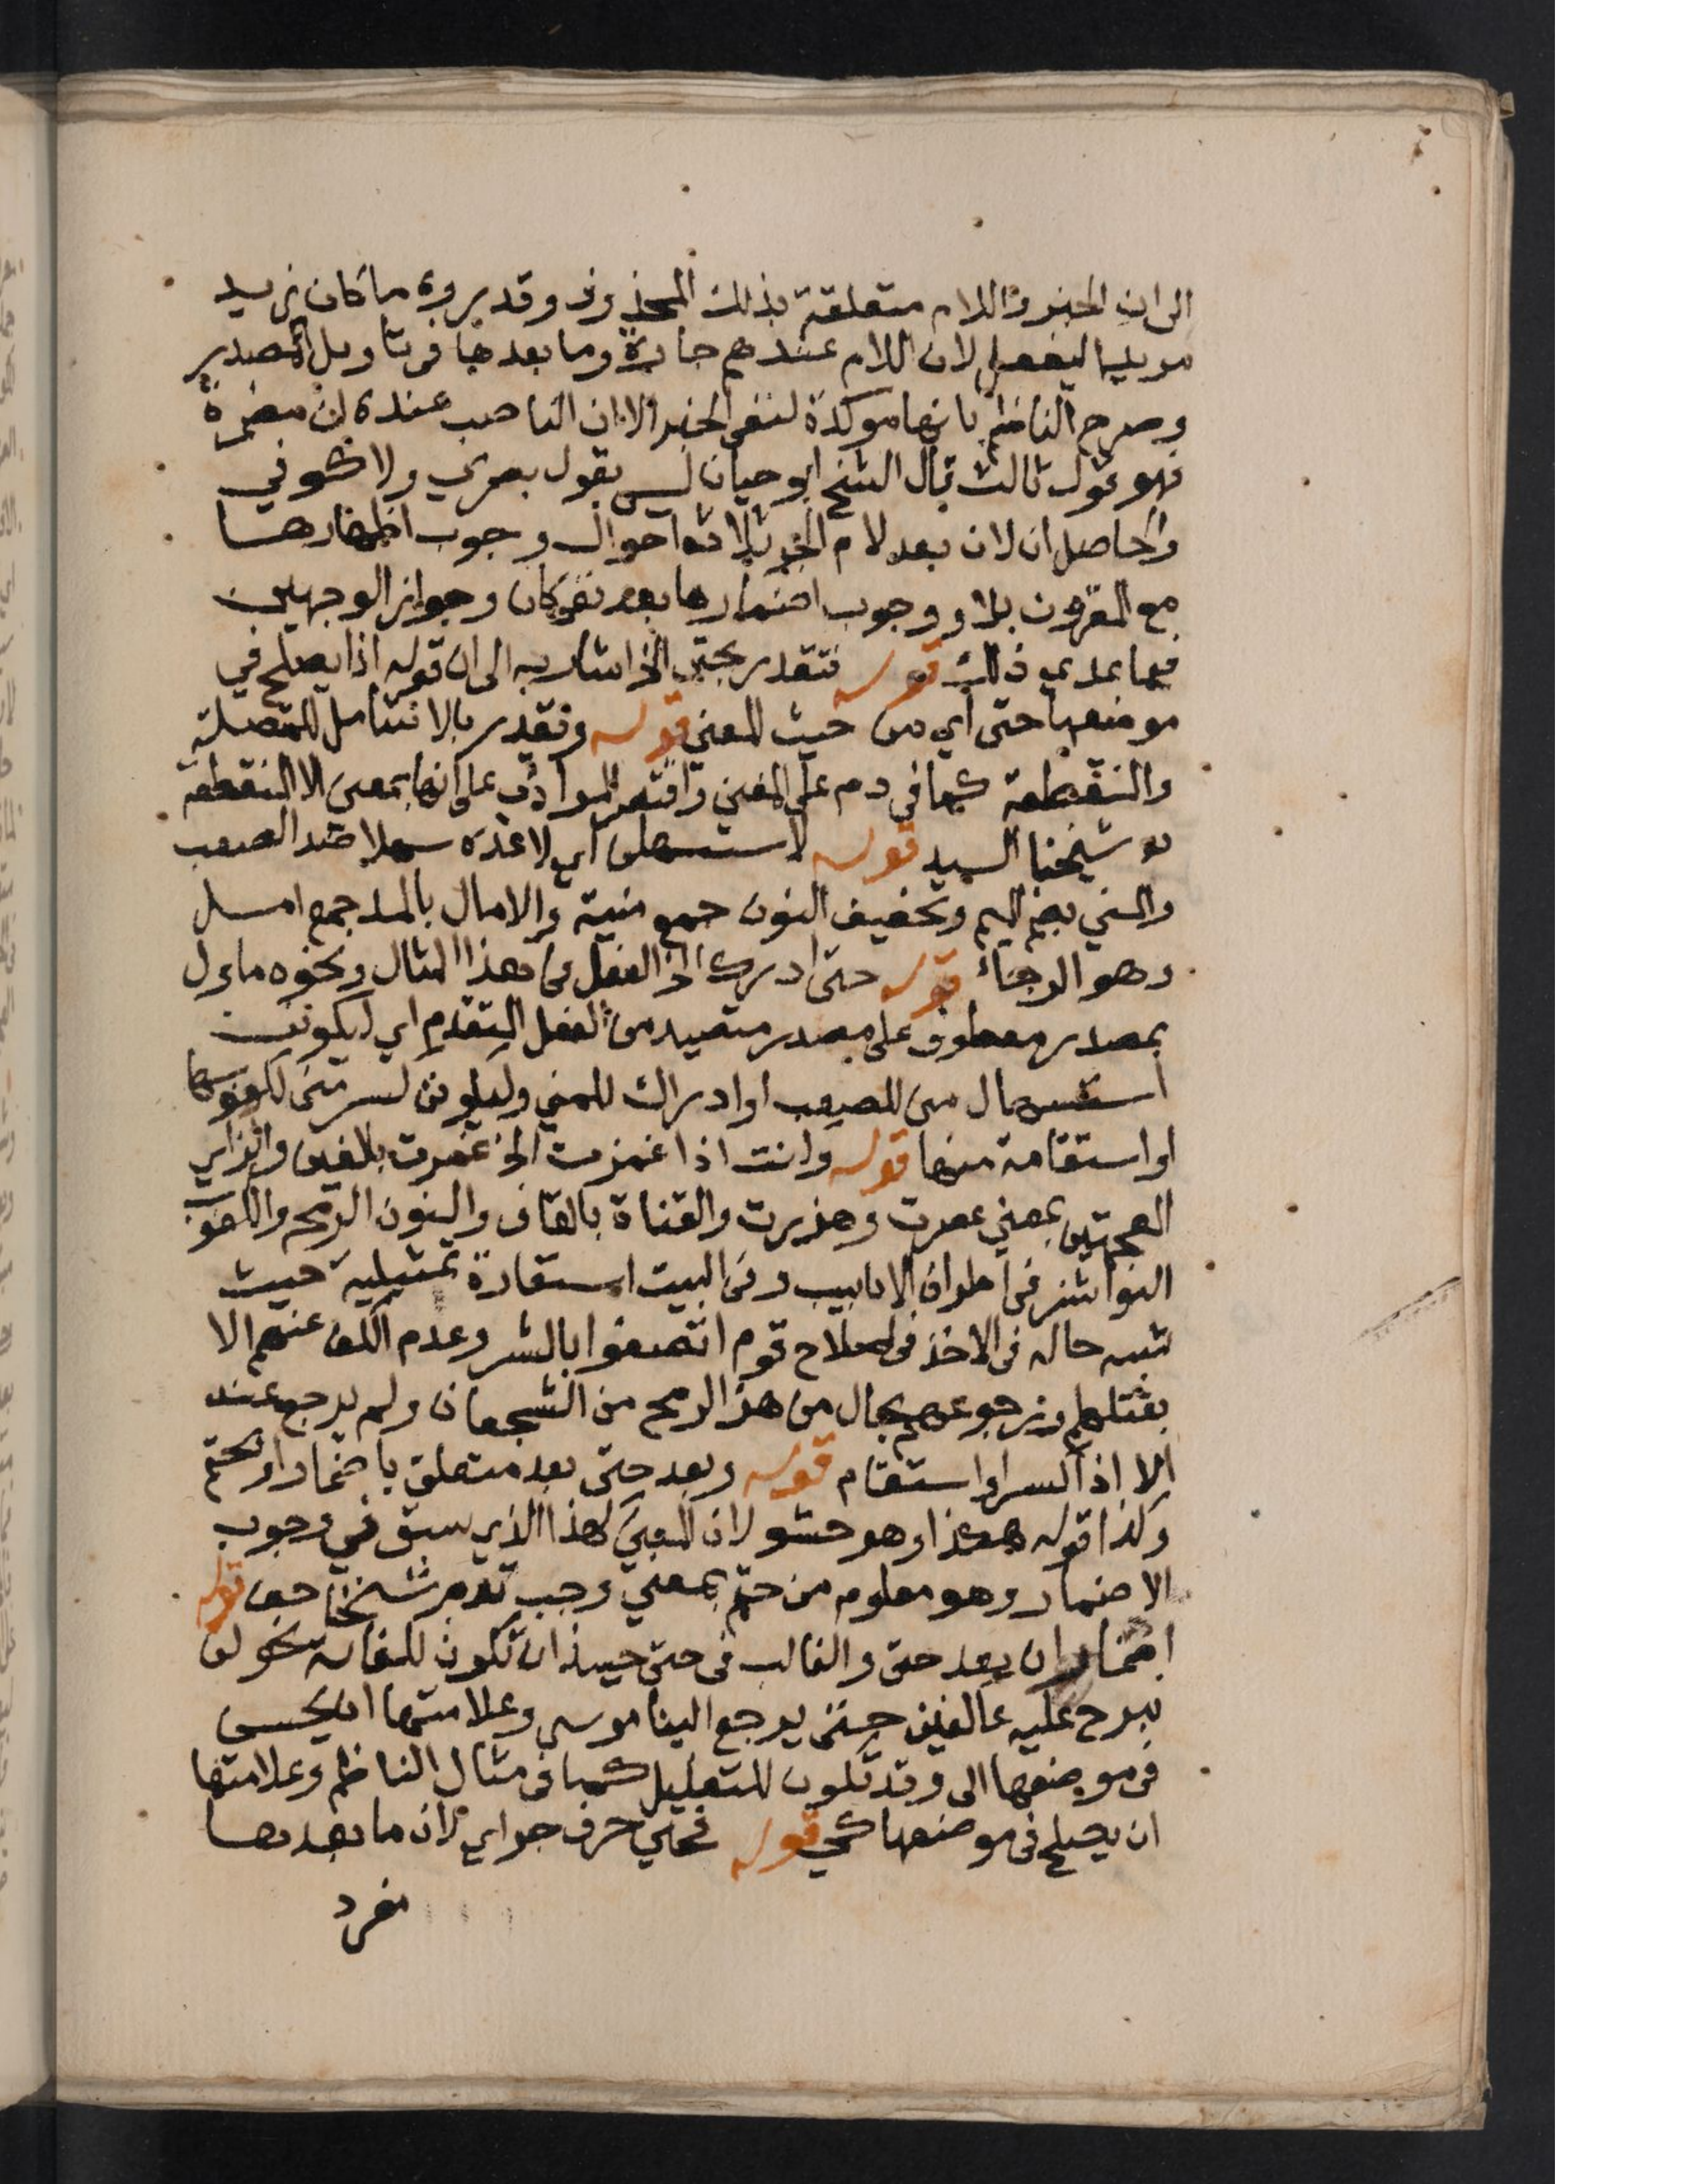 الى ان الخبر واللام متعلقة بذلك المحذوف وقدروه ما كان زيد
مريدا ليفعل لان اللام عندهم جارة وما بعدها فى تاويل المصدر
وصرح الناظم بانها موكدة لنفى الخبر الا ان الناصب عنده ان مضمرة
فهو قول ثالث قال الشيخ ابو حيان ليس بقول بصري ولا كوفي
والحاصل ان لان بعد لام الجر ثلاثة احوال وجوب اظهارها
مع المقرون بلا ووجوب اضمارها بعد نفى كان وجواز الوجهين
فيما عدى ذلك قوله فتقدر بحتى الخ اشار به الى ان قوله اذا يصلح في
موضعها حتى اي من حيث المعنى قوله وتقدر بالا تشامل للمتصلة
والمنقطعة كما فى دم على المغني واقتصر المرادي على انها بمعنى الا المنقطعة
شيخنا السيد قوله لاستسهلن اي لاعده سهلا ضد الصعب
والمني بضم الميم وتخفيف النون جمع منية والامال بالمد جمع امل
وهو الرجاء قوله حتى ادرك الخ الفعل فى هذا المثال ونحوه ماول
بمصدر معطوف على مصدر متصيد من الفعل المتقدم اي ليكونن
استسهال منى للصعب او ادراك للمني وليكونن كسر منى لكعوبها
او استقامة منها قوله وانت اذا غمزت الخ غمزت بالغين والزاي
المعجمتين بمعنى عصرت وهزرت والقناة بالقاف والنون الرمح والكعوب
النواشز فى اطراف الانابيب وفى البيت استعارة تمثيلية حيث
شبه حاله فى الاخذ فى اصلاح قوم اتصفوا بالشر وعدم الكف عنهم الا
بقتلهم ورجوعهم بحال من هز الرمح من الشجعان ولم يرجع عنه
الا اذا انكسر او استقام قوله وبعد حتى بعد متعلق باضمار او بحتم
وكذا قوله هكذا وهو حشو لان المعنى كهذا الذي سبق في وجوب
الاضمار وهو معلوم من حتم بمعنى وجب شيخنا قوله
اضمار ان بعد حتى والغالب فى حتى حينئذ ان تكون للغاية نحو لن
نبرح عليه عاكفين حتى يرجع الينا موسى وعلامتها ان يحسن
فى موضعها الى وقد تكون للتعليل كما فى مثال الناظم وعلامتها
ان يصلح فى موضعها كي قوله فحتى حرف جر اي لان ما بعدها
مفرد